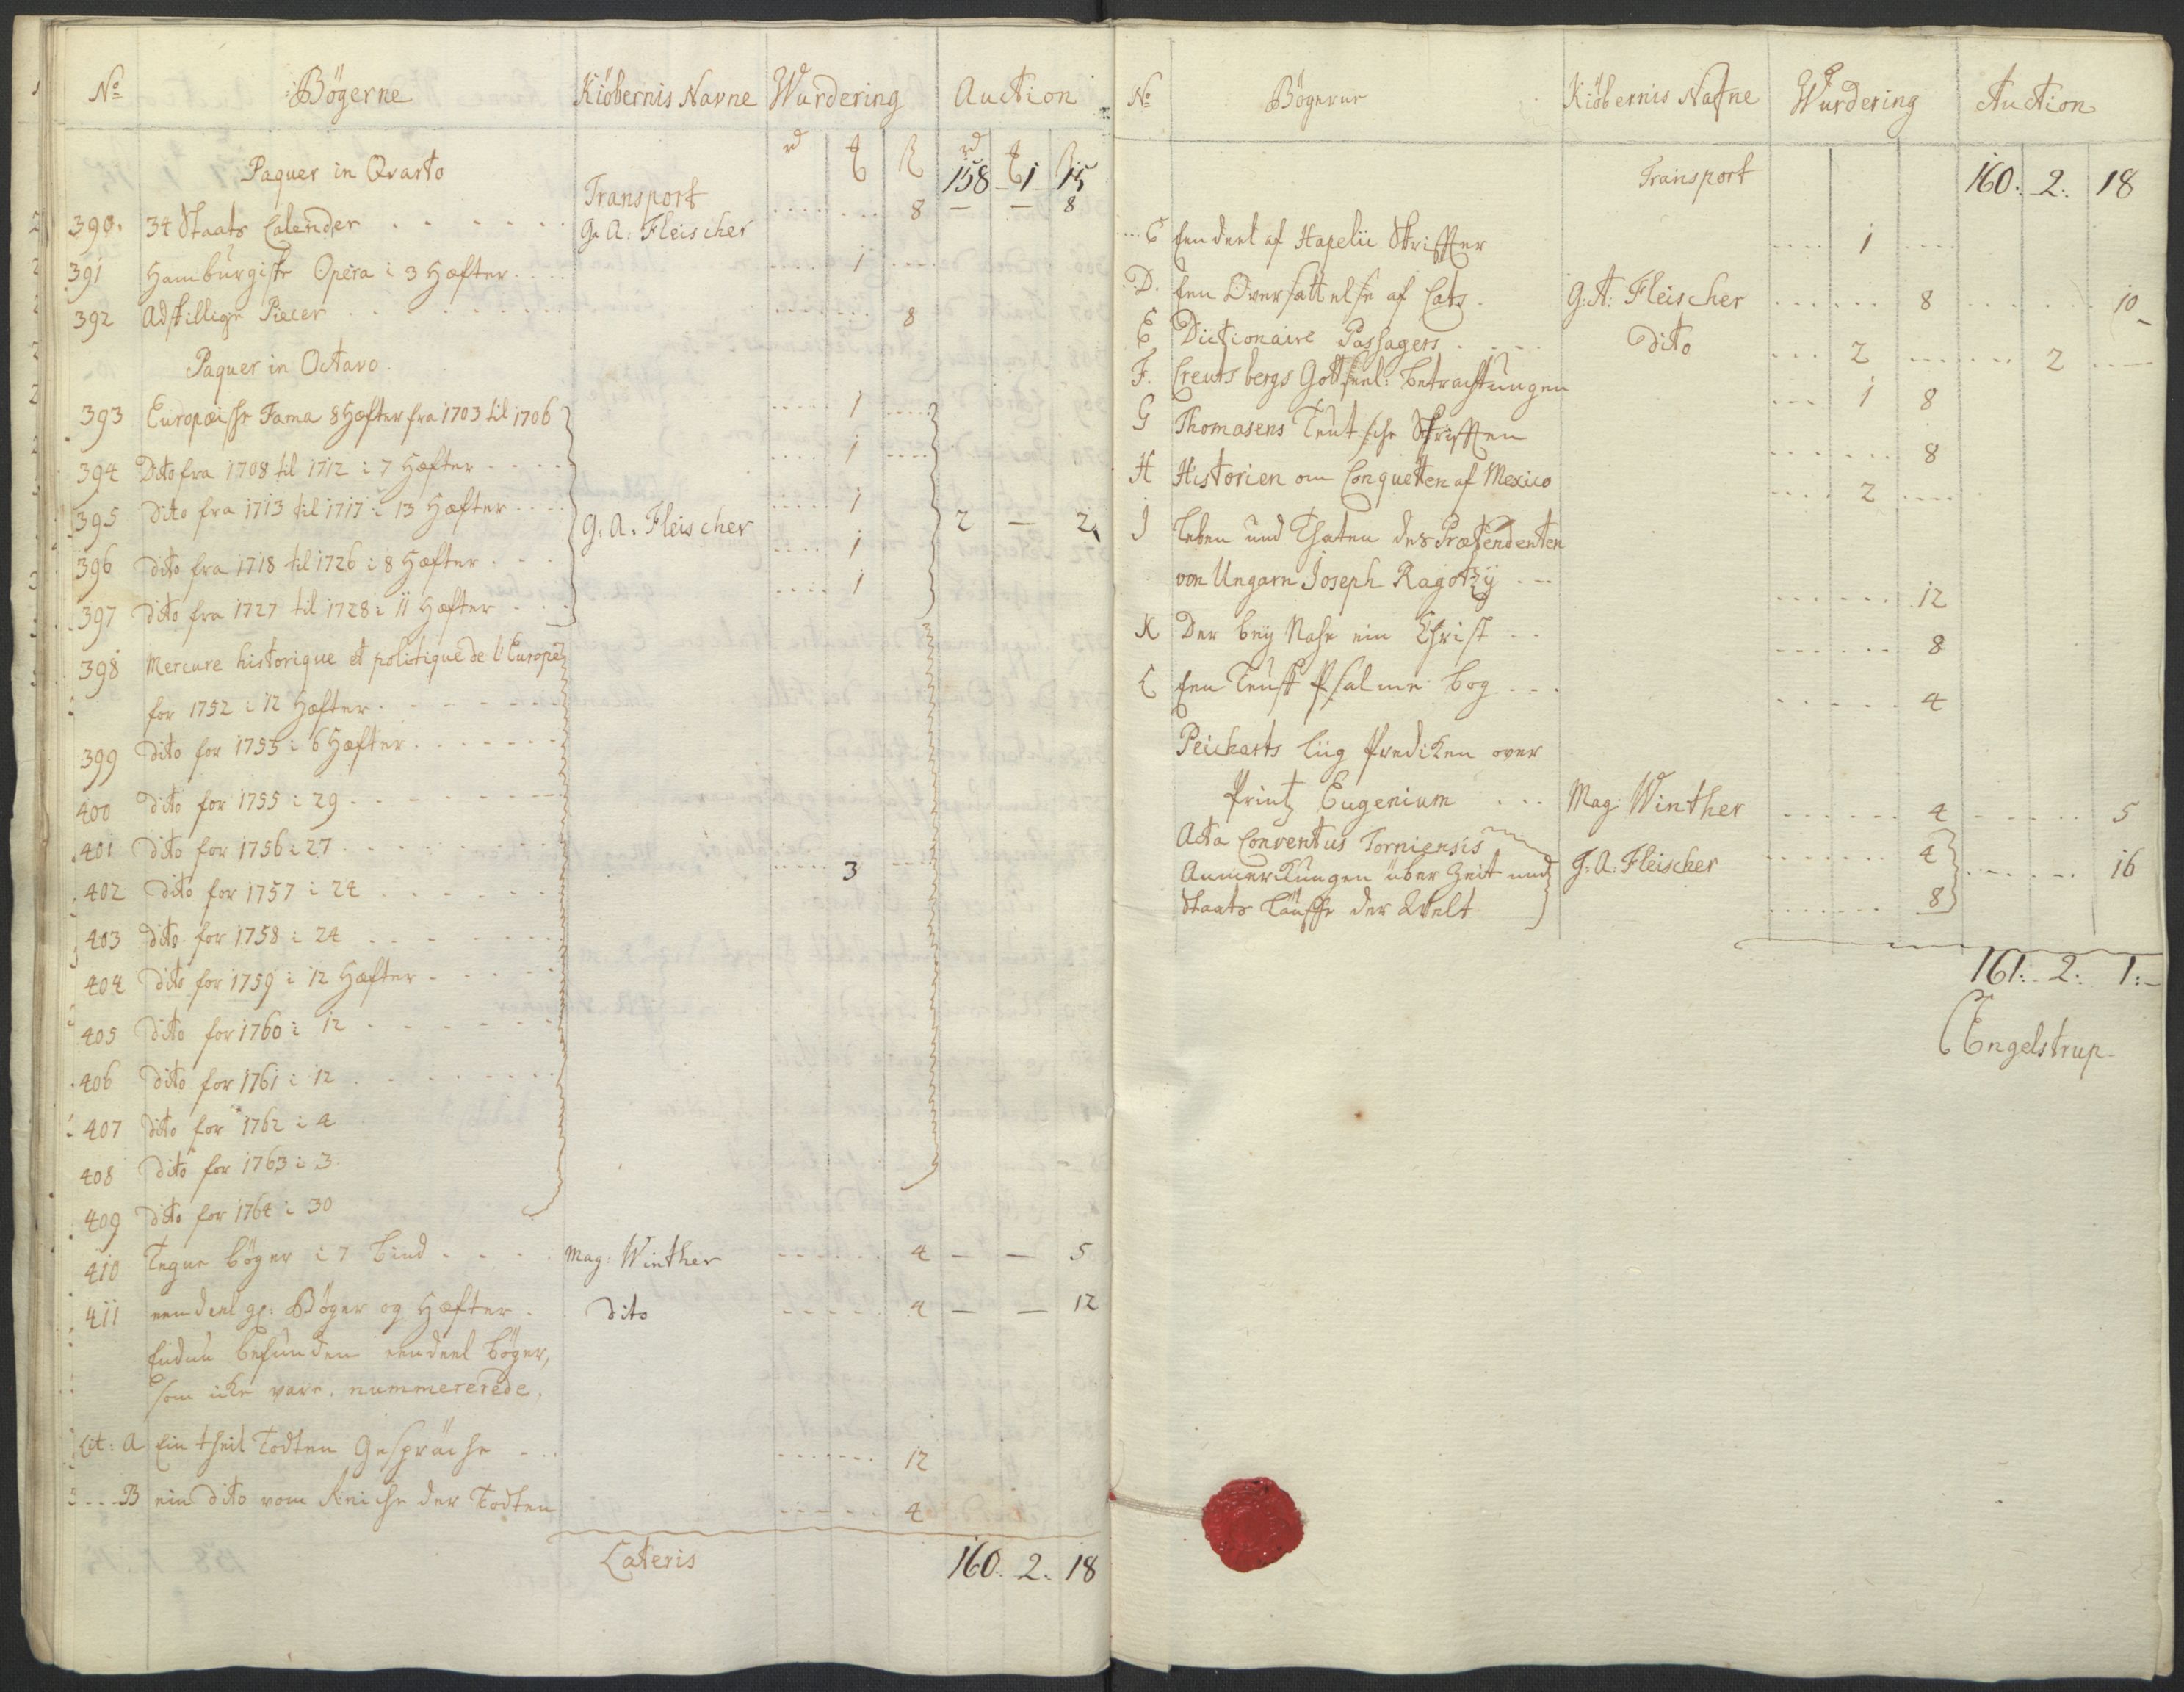 No Bögerne Kiöbernis Navne Wurdering Auction
rd ₶ ß rd ₶ ß
Paquer in Qvarto Transport 158 1 15
390. 34 Staats Calender G. A: Fleischer 8 — — 8
391 Hamburgiske Opera i 3 Hæfter 1
392 Adskillige Piecer 8
Paquer in Octavo
393 Europæische Fama 8 Hæfter fra 1703 til 1706 1
394 Dito fra 1708 til 1712 i 7 Hæfter 1
395 Dito fra 1713 til 1717 i 13 Hæfter 1
G. A. Fleischer 2 — 2
396 Dito fra 1718 til 1726 i 8 Hæfter 1
397 Dito fra 1727 til 1728 i 11 Hæfter 1
398 Mercure historique et politique de l'Europe
for 1752 i 12 Hæfter
399 Dito for 1755 i 6 Hæfter
400 Dito for 1755 i 29
401 Dito for 1756 i 27
3
402 Dito for 1757 i 24
403 Dito for 1758 i 24
404 Dito for 1759 i 12 Hæfter
405 Dito for 1760 i 12
406 Dito for 1761 i 12
407 Dito for 1762 i 4
408 Dito for 1763 i 3.
409 Dito for 1764 i 30
410 Tegne böger i 7 bind Mag: Winther 4 — — 5
411 een deel gl: Böger og Hæfter dito 4 — — 12
Endnu befunden een deel böger,
som icke vare nummererede.
Lit: A Ein theil Todten Gespräche 12
B ein dito vom Reiche der Todten 4
Lateris 160. 2. 18
No Bögerne Kiöbernis Nafne Wurdering Auction
Transport 160. 2. 18
C Een deel af Hapelii Skriffter 1
D. Een Oversættelse af Cats. G: A: Fleischer 8 10
E Dictionaire Passagers dito 2 2
F. Creutsbergs Gottseel: betrachtungen 1 8
G Thomasens Teutsche Schrifften 8
H Historien om Conquetten af Mexico 2
I Leben und Thaten des Prætendenten
von Ungarn Joseph Ragotzÿ 12
K Der beÿ Nahe ein Christ 8
L Een Teusk Psalme bog 4
Peicharts liig Prediken over
Printz Eugenium Mag: Winther 4 5
Acta Conventus Torniensis 4
G. A: Fleischer 16
Anmerckungen über Zeit und
Staats läuffe der Welt 8
161. 2. 1.
CEngelstrup